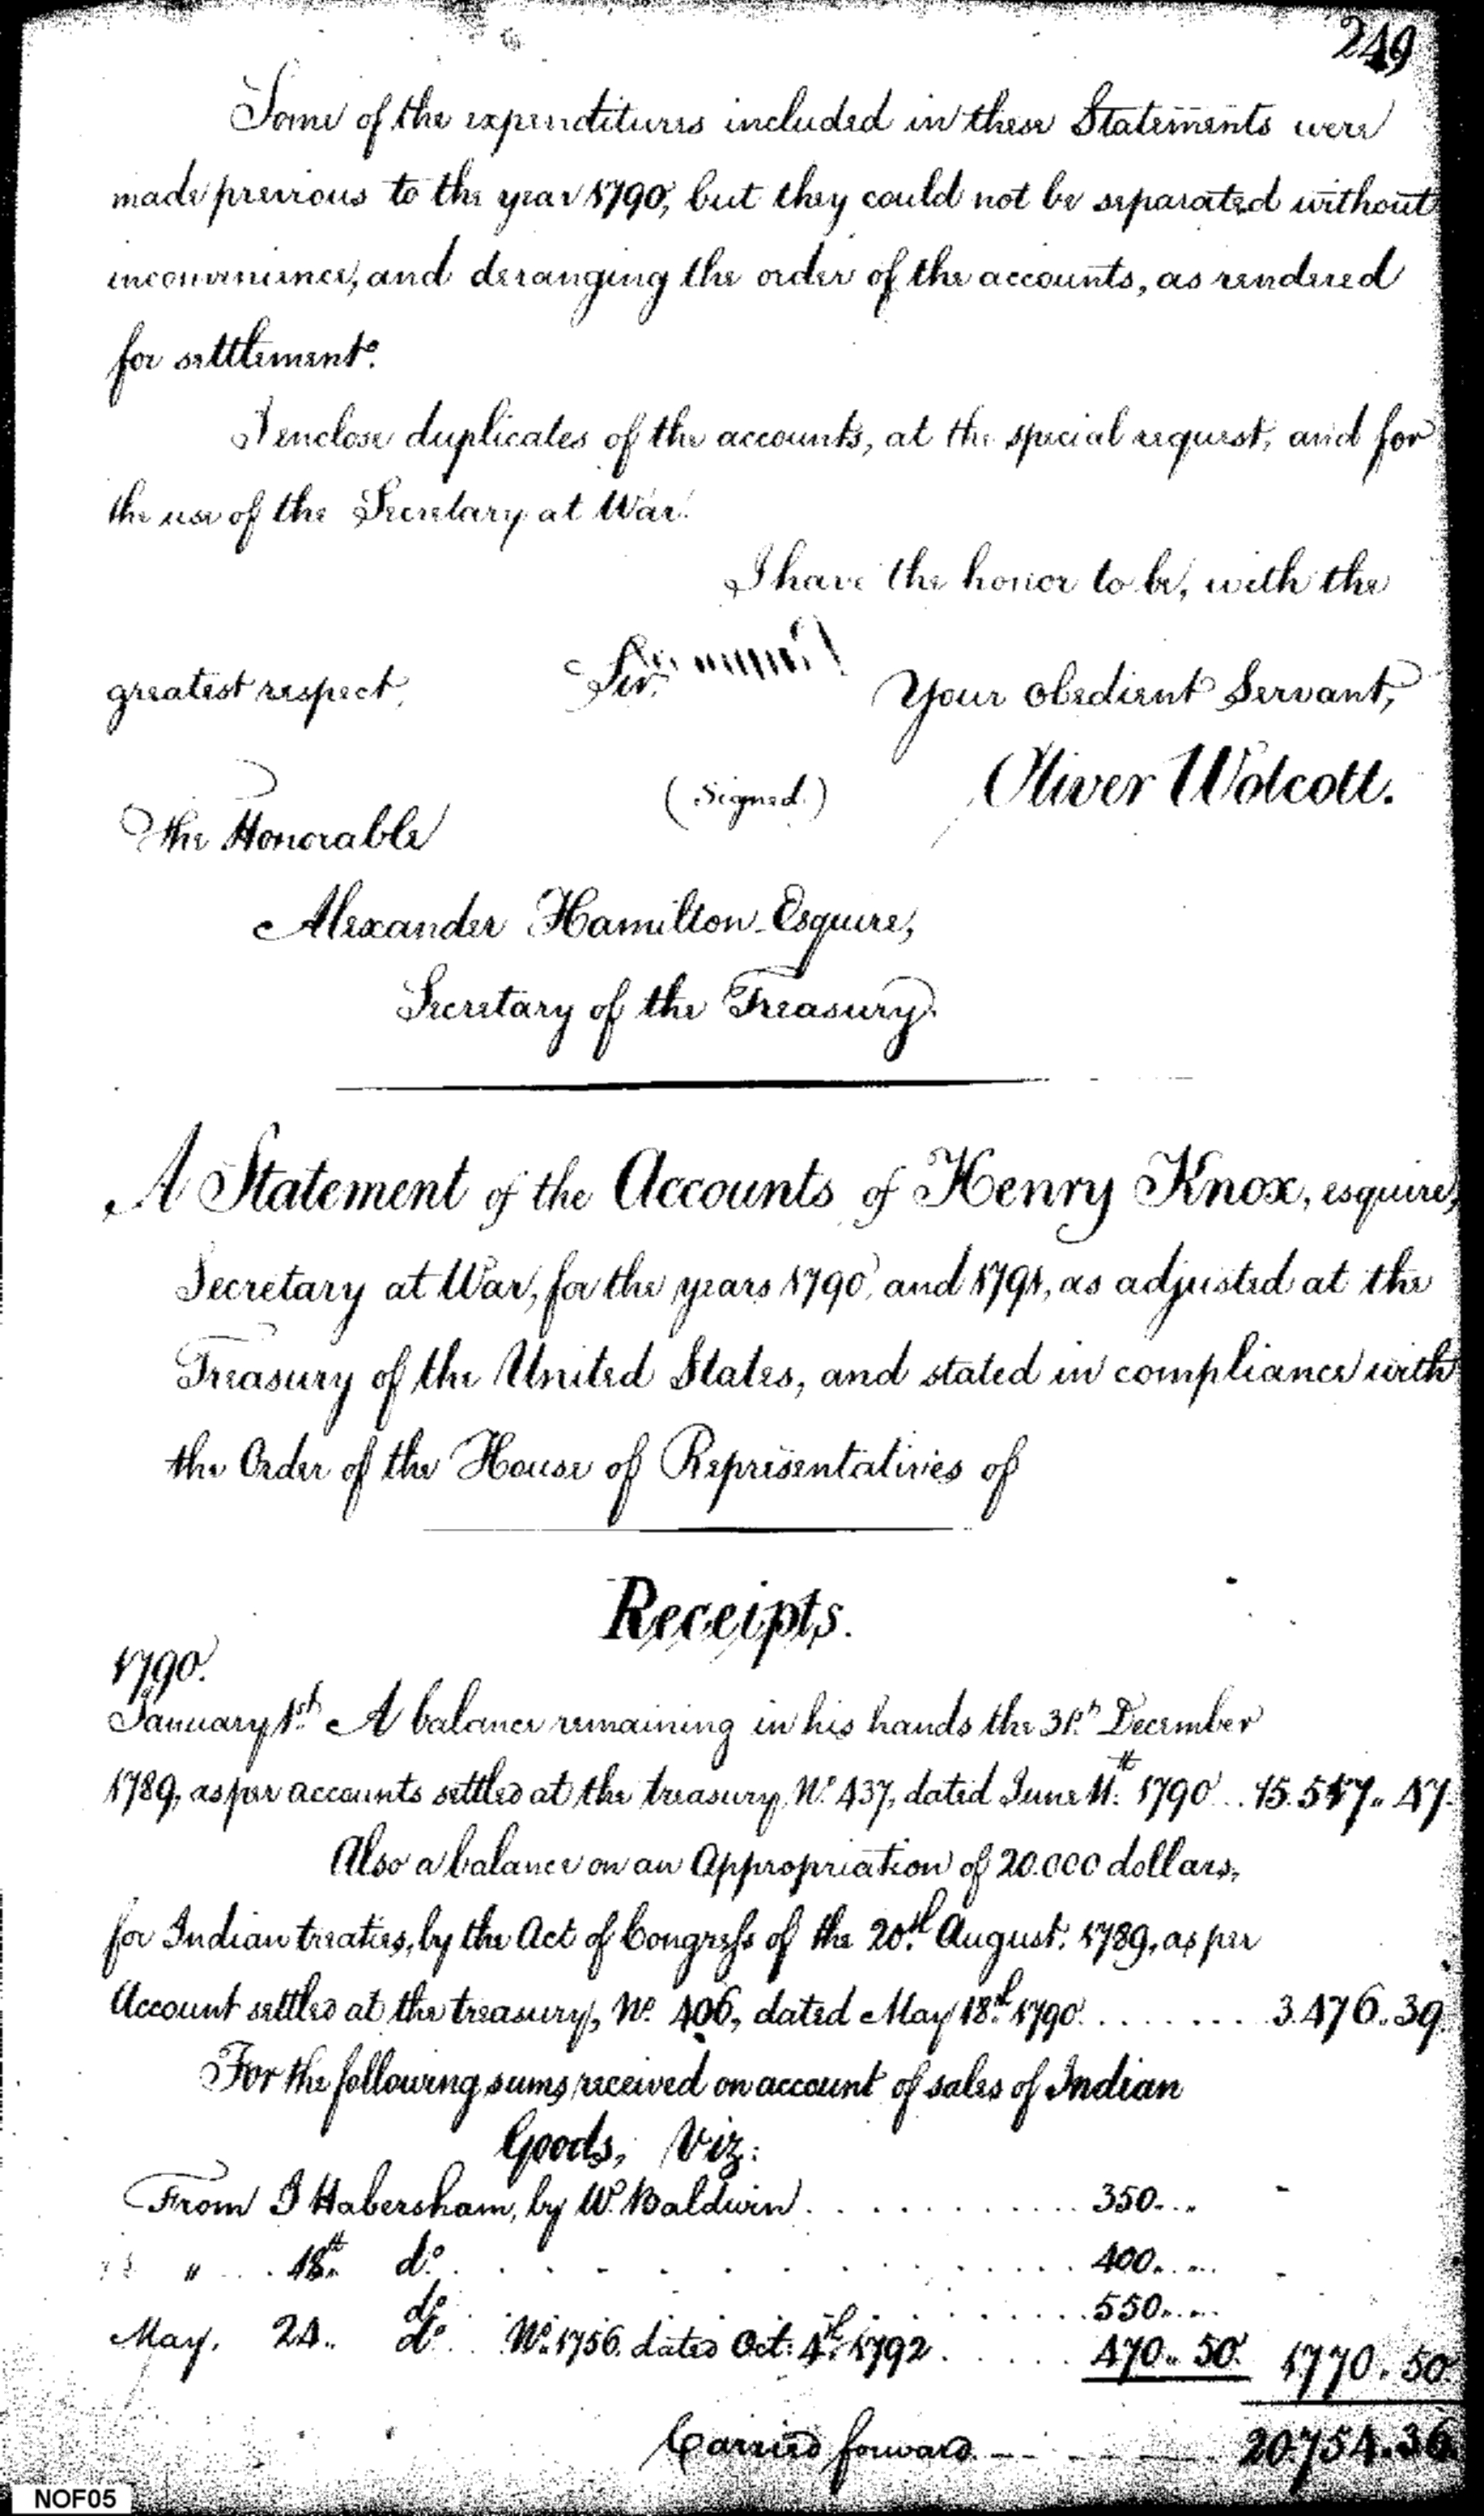 249
Some of the expenditures included in these Statements were
made previous to the year 1790, but they could not be separated without
inconvenience, and deranging the order of the accounts, as rendered
for settlement.
I enclose duplicates of the accounts, at the special request, and for
the use of the Secretary at War.
I have the honor to be, with the
greatest respect, Sir, Your obedient Servant,
(Signed.) Oliver Wolcott.
The Honorable
Alexander Hamilton Esquire,
Secretary of the Treasury.
A Statement of the Accounts of Henry Knox, esquire,
Secretary at War, for the years 1790, and 1791, as adjusted at the
Treasury of the United States, and stated in compliance with
the Order of the House of Representatives of
Receipts.
1790.
January 1st. A balance remaining in his hands the 31st December
1789, as per accounts settled at the treasury, No. 437, dated June 11th. 1790... 15.507.. 47.
Also a balance on an Appropriation of 20.000 dollars,
for Indian treaties, by the Act of Congress of the 20th. August. 1789, as per
Account settled at the treasury, No. 406, dated May 18th. 1790. . . . . . . . 3.476..39.
For the following sums received on account of sales of Indian
Goods, Viz:
From J Habersham, by W. Baldwin. . . . . . . . . . . . 350...
" 18th.. do. . . . . . . . . . . . . . 400....
do. . . . . . . . . . . 550....
May. 24.. do.. No. 1756. dated Oct. 4th. 1792. . . . . . 470.. 50. 1770. 50
Carried forward. 20.754.36.